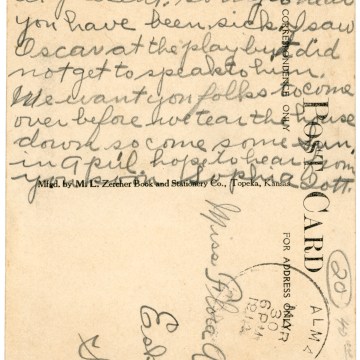 you have been sick. I saw
Oscar at the play but did
not get to speak to him.
We want you folks to come
over before we tear the house
down so come some Sun.
in April. hope to hear from
you soon. Sophia Cott.
Mfd. by M. L. Zercher Book and Stationery Co., Topeka, Kansas
CORRESPONDENCE ONLY
POST CARD
FOR ADDRESS ONLY
ALMA
MAR
30
6 PM
Miss Flora
Esk
20